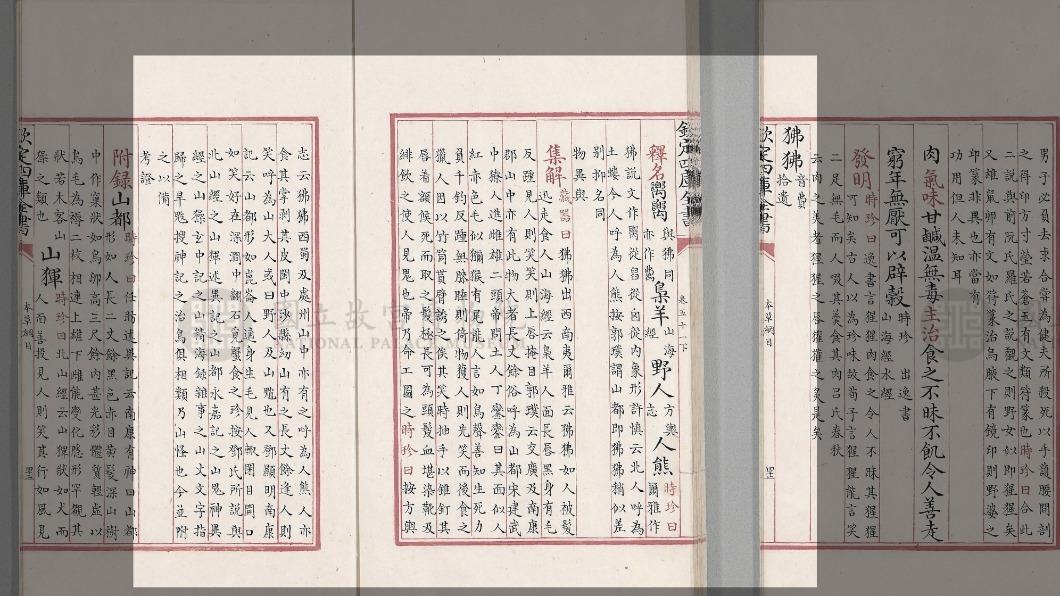 男子必員去求合嘗為健夫所殺死以手護腰間剖
之得印方寸瑩若倉玉有文類符篆也時珍曰合此
二說與前阮氏羅氏之說觀之則野女似即猩猩矣
又雄鼠卵有文如符篆治鳥腋下有鏡印則野婆之
印篆非異也亦當有
功用但人未知耳
肉氣味甘鹹溫無毒主治食之不昧不飢令人善走
窮年無厭可以辟穀時珍 出逸書山海經水經
發明時珍曰逸書言猩猩肉食之令人不昧其猩猩
可知矣古人以為珍味故荀子言猩猩能言笑
二足無毛而人啜其羹食其肉呂氏春秋
云肉之美者猩猩之唇獾獾之炙是矣
狒狒音費拾遺
欽定四庫全書
本草綱目
欽定四庫全書
卷五十一下
釋名 與狒同亦作 梟羊山海經野人方輿志人熊時珍曰爾雅作
狒說文作 從 從囟從内象形許慎云北人呼為
土螻今人呼為人熊按郭璞謂山都即狒狒稍似差
別抑名同
物異與
集解藏器曰狒狒出西南夷爾雅云狒狒如人被髮
迅走食人山海經云梟羊人面長唇黑身有毛
反踵見人則笑笑則上唇掩目郭璞云交廣及南康
郡山中亦有此物大者長丈餘俗呼為山都宋建武
中獠人進雌雄二頭帝問土人丁鑾鑾曰其面似人
紅赤色毛似獼猴有尾能人言如鳥聲善知生死力
負千鈞反踵無膝睡則倚物獲人則先笑而後食之
獵人因以竹筒貫臂誘之俟其笑時抽手以錐釘其
唇着額候死而取之髮極長可為頭髲血堪染靴及
緋飲之使人見鬼也帝乃命工圖之時珍曰按方輿
志云狒狒西蜀及處州山中亦有之呼為人熊人亦
食其掌剥其皮閩中沙縣幼山有之長丈餘逢人則
笑呼為山大人或曰野人及山魈也又鄧顯明南康
記云山都形如崑崙人通身生毛見人輒閉目開口
如笑好在深澗中翻石覓蟹食之珍按鄧氏所說與
北山經之山 述異記之山都永嘉記之山鬼神異
經之山 玄中記之山 海録雜事之山 文字指
歸之旱魃搜神記之治鳥俱相類乃山怪也今並附
之以備
考證
附録山都時珍曰任昉述異記云南康有神曰山都
形如人長二丈餘黑色赤目黄髮深山樹
中作窠狀如鳥卵高三尺餘内甚光彩體質輕虛以
鳥毛為褥二枚相連上雄下雌能變化隱形罕覩其
狀若木客山
猱之類也山 時珍曰北山經云山 狀如犬而
人面善投見人則笑其行如風見
欽定四庫全書
本草綱目